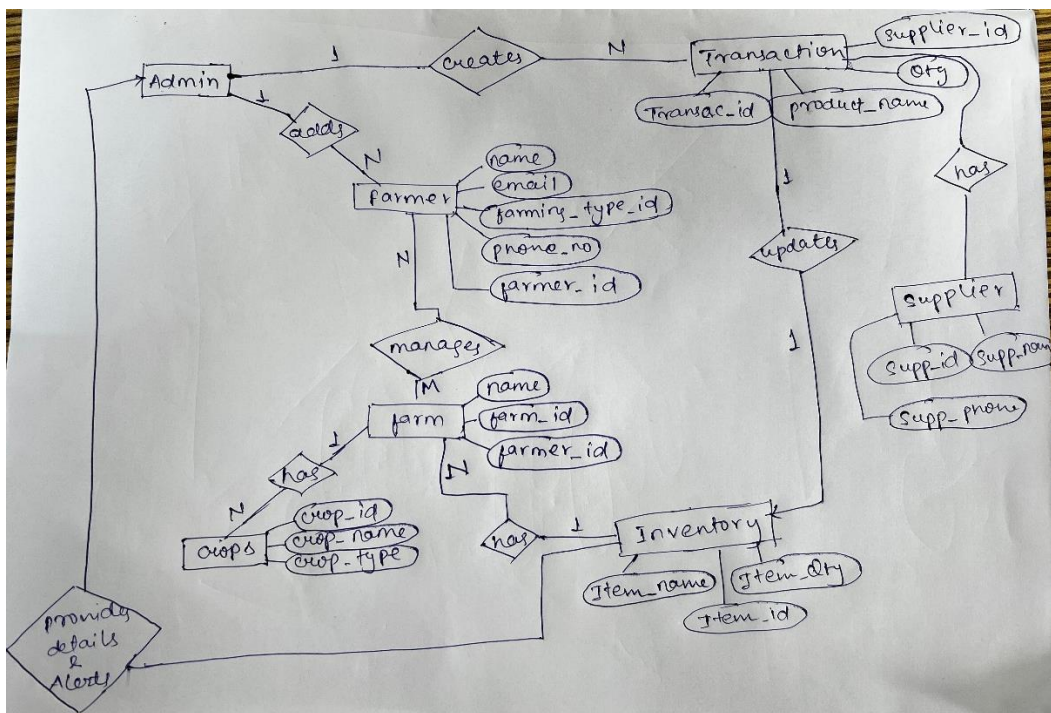 Admin
1
creates
N
Transaction
supplier_id
Qty
Transac_id
product_name
1
adds
N
farmer
name
email
farming_type_id
phone_no
farmer_id
has
1
updates
1
Supplier
Supp_id
Supp_nam
Supp_phone
N
manages
M
farm
name
farm_id
farmer_id
1
has
N
crops
crop_id
crop_name
crop_type
N
has
1
Inventory
Item_name
Item_Qty
Item_id
provides
details
&
Alerts